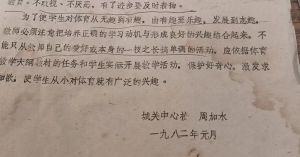 教育、不歧视、不厌恶、有了进步要及时表扬。
为了使学生对体育从无趣到有趣，由有趣至乐趣，发展到志趣，
教师必须注意把培养正确的学习动机与形成良好的兴趣结合起来，不
能只从教师自己的爱好或本身的一技之长搞单调的活动。应依据体育
教学大纲教材的任务和学生实际开展教学活动，保护好奇心，激发求
知欲，使学生从小对体育就有广泛的兴趣。
城关中心校 周加水
一九八二年元月